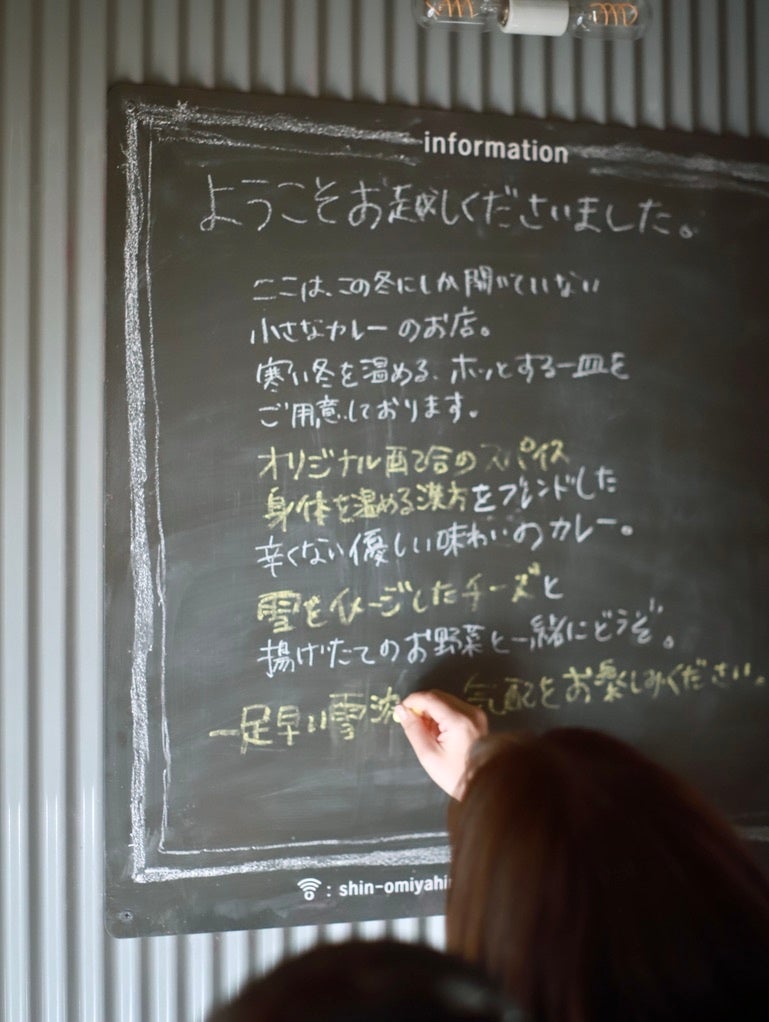 information
ようこそお越しくださいました。
ここは、この冬にしか開いていない
小さなカレーのお店。
寒い冬を温める、ホッとする一皿を
ご用意しております。
オリジナル配合のスパイス
身体を温める漢方をブレンドした
辛くない優しい味わいのカレー。
雪をイメージしたチーズと
揚げたてのお野菜と一緒にどうぞ。
一足早い雪 気配をお楽しみください。
: shin-omiyahi